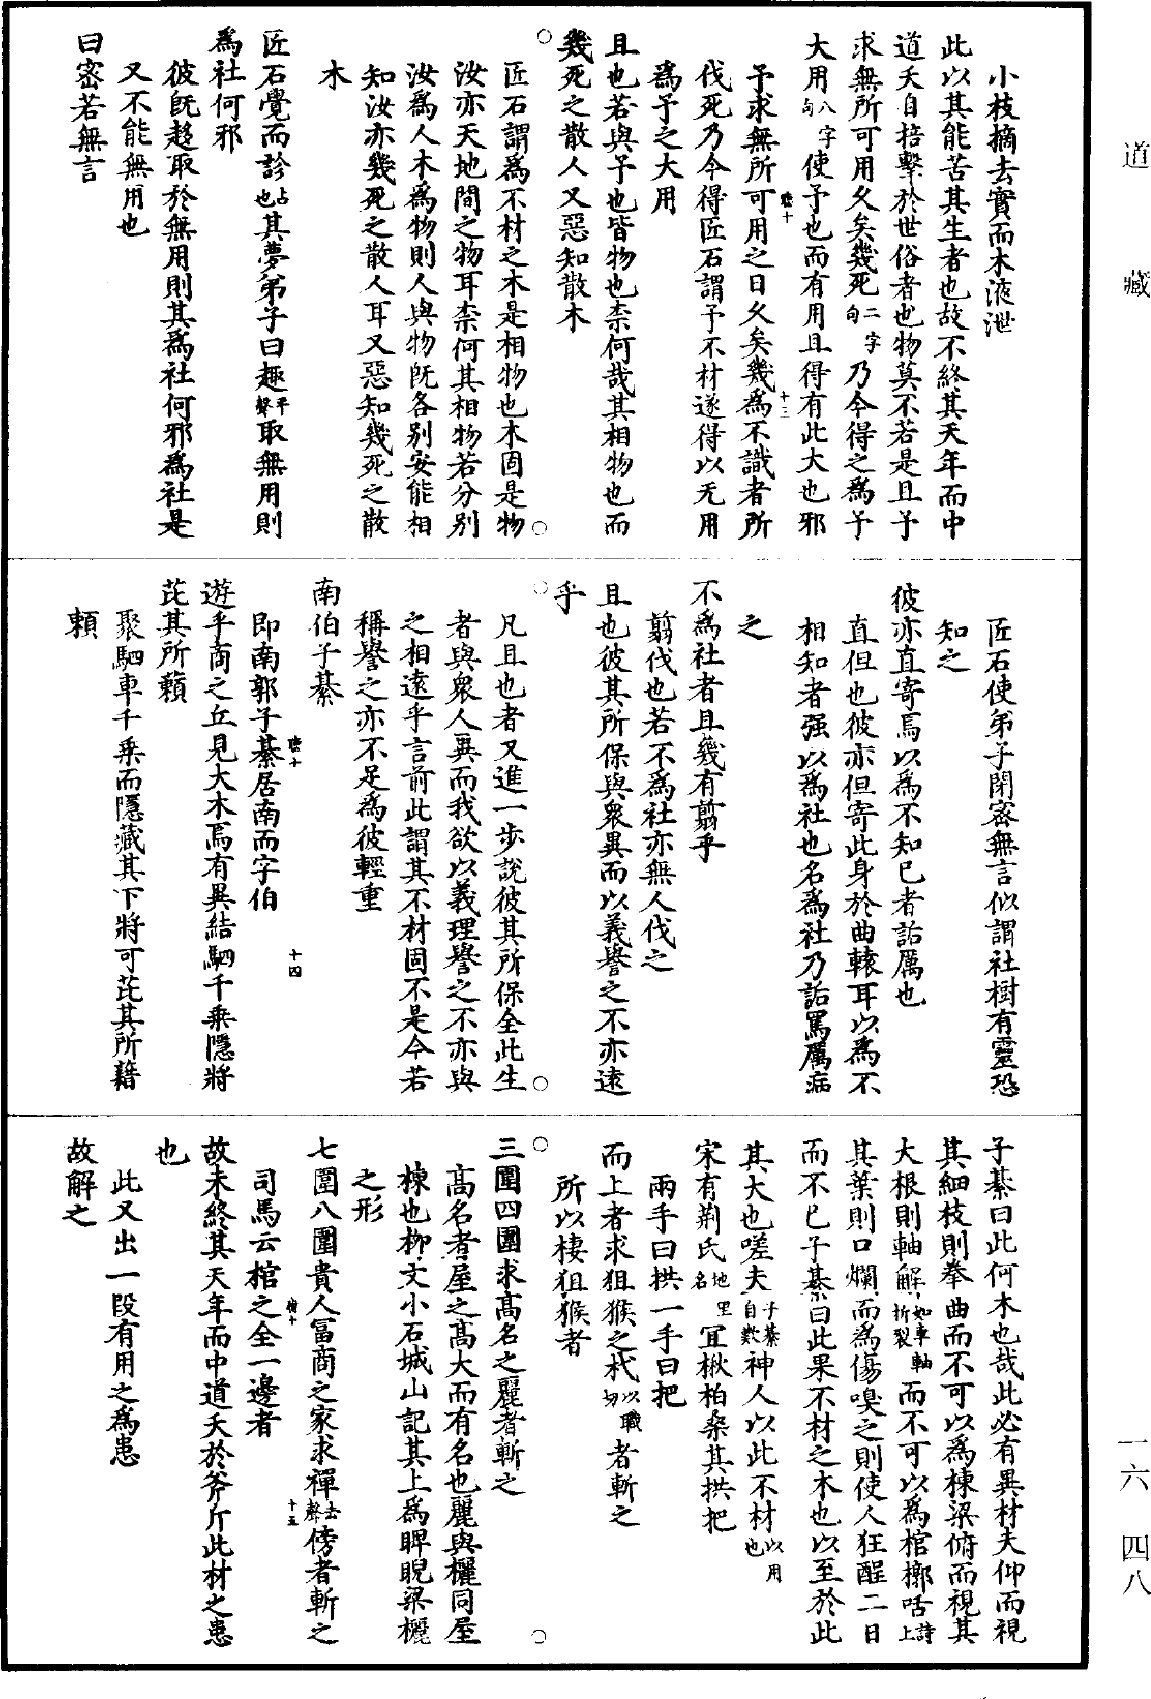 道藏
一六 四八
小枝摘去實而木液泄
此以其能苦其生者也故不終其天年而中
道夭自掊擊於世俗者也物莫不若是且予
求無所可用久矣幾死二字句乃今得之爲予
大用八字句使予也而有用且得有此大也邪
予求無所可用之日久矣幾爲不識者所
伐死乃今得匠石謂予不材遂得以无用
爲予之大用
且也若與予也皆物也柰何哉其相物也而
幾死之散人又惡知散木
匠石謂爲不材之木是相物也木固是物
汝亦天地間之物耳柰何其相物若分別
汝爲人木爲物則人與物旣各別安能相
知汝亦幾死之散人耳又惡知幾死之散
木
匠石覺而診占也其夢弟子曰趣平聲取無用則
爲社何邪
彼旣趍取於無用則其爲社何邪爲社是
又不能無用也
曰密若無言
匠石使弟子閉密無言似謂社樹有靈恐
知之
彼亦直寄焉以爲不知已者詬厲也
直但也彼亦但寄此身於曲轅耳以爲不
相知者强以爲社也名爲社乃詬罵厲病
之
不爲社者且幾有翦乎
翦伐也若不爲社亦無人伐之
且也彼其所保與衆異而以義譽之不亦遠
乎
凡且也者又進一步說彼其所保全此生
者與衆人異而我欲以義理譽之不亦與
之相遠乎言前此謂其不材固不是今若
稱譽之亦不足爲彼輕重
南伯子綦
即南郭子綦居南而字伯
遊乎商之丘見大木焉有異結駟千乘隱將
芘其所藾
聚駟車千乘而隱藏其下將可芘其所藉
頼
子綦曰此何木也哉此必有異材夫仰而視
其細枝則拳曲而不可以爲棟梁俯而視其
大根則軸解如車軸折裂而不可以爲棺槨咶詩上
其葉則口爛而爲傷嗅之則使人狂酲二日
而不已子綦曰此果不材之木也以至於此
其大也嗟夫子綦自歎神人以此不材以用也
宋有荆氏地里名宜楸柏桑其拱把
兩手曰拱一手曰把
而上者求狙猴之杙以職切者斬之
所以棲狙猴者
三圍四圍求高名之麗者斬之
高名者屋之高大而有名也麗與欐同屋
棟也柳文小石城山記其上爲睥睨梁欐
之形
七圍八圍貴人富商之家求樿去聲傍者斬之
司馬云棺之全一邊者
故未終其天年而中道夭於斧斤此材之患
也
此又出一段有用之爲患
故解之